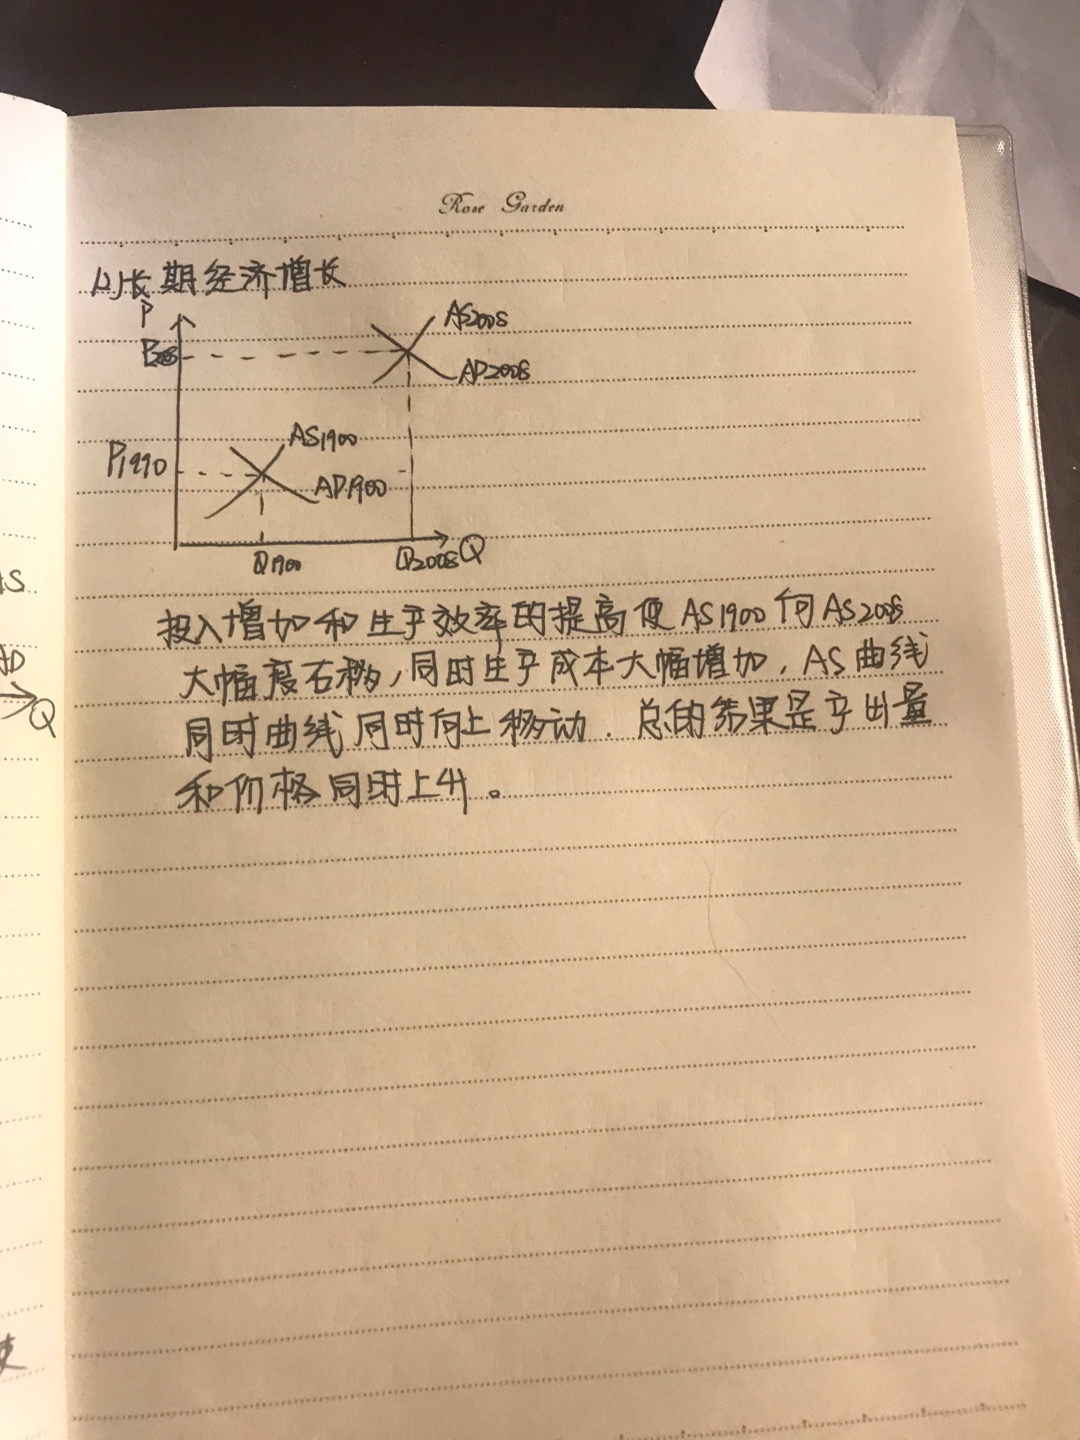 Rose Garden
(2)长期经济增长
P
AS2008
P2008
AD2008
AS1900
P1990
AD1900
Q1900
Q2008 Q
AS
投入增加和生产效率的提高使AS1900向AS2008
AD
大幅度右移,同时生产成本大幅增加,AS曲线
Q
同时曲线同时向上移动.总的结果是产出量
和价格同时上升。